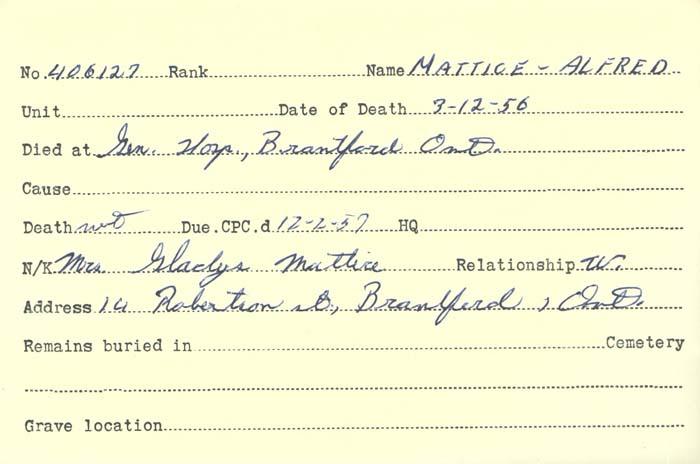 No. 406127 Rank Name MATTICE - ALFRED
Unit Date of Death 3-12-56
Died at Gen. Hosp., Brantford Ont.
Cause
Death not Due.CPC.d 12-2-57 HQ
N/K Mrs. Gladys Mattice Relationship W.
Address 14 Robertson St., Brantford, Ont.
Remains buried in Cemetery
Grave location